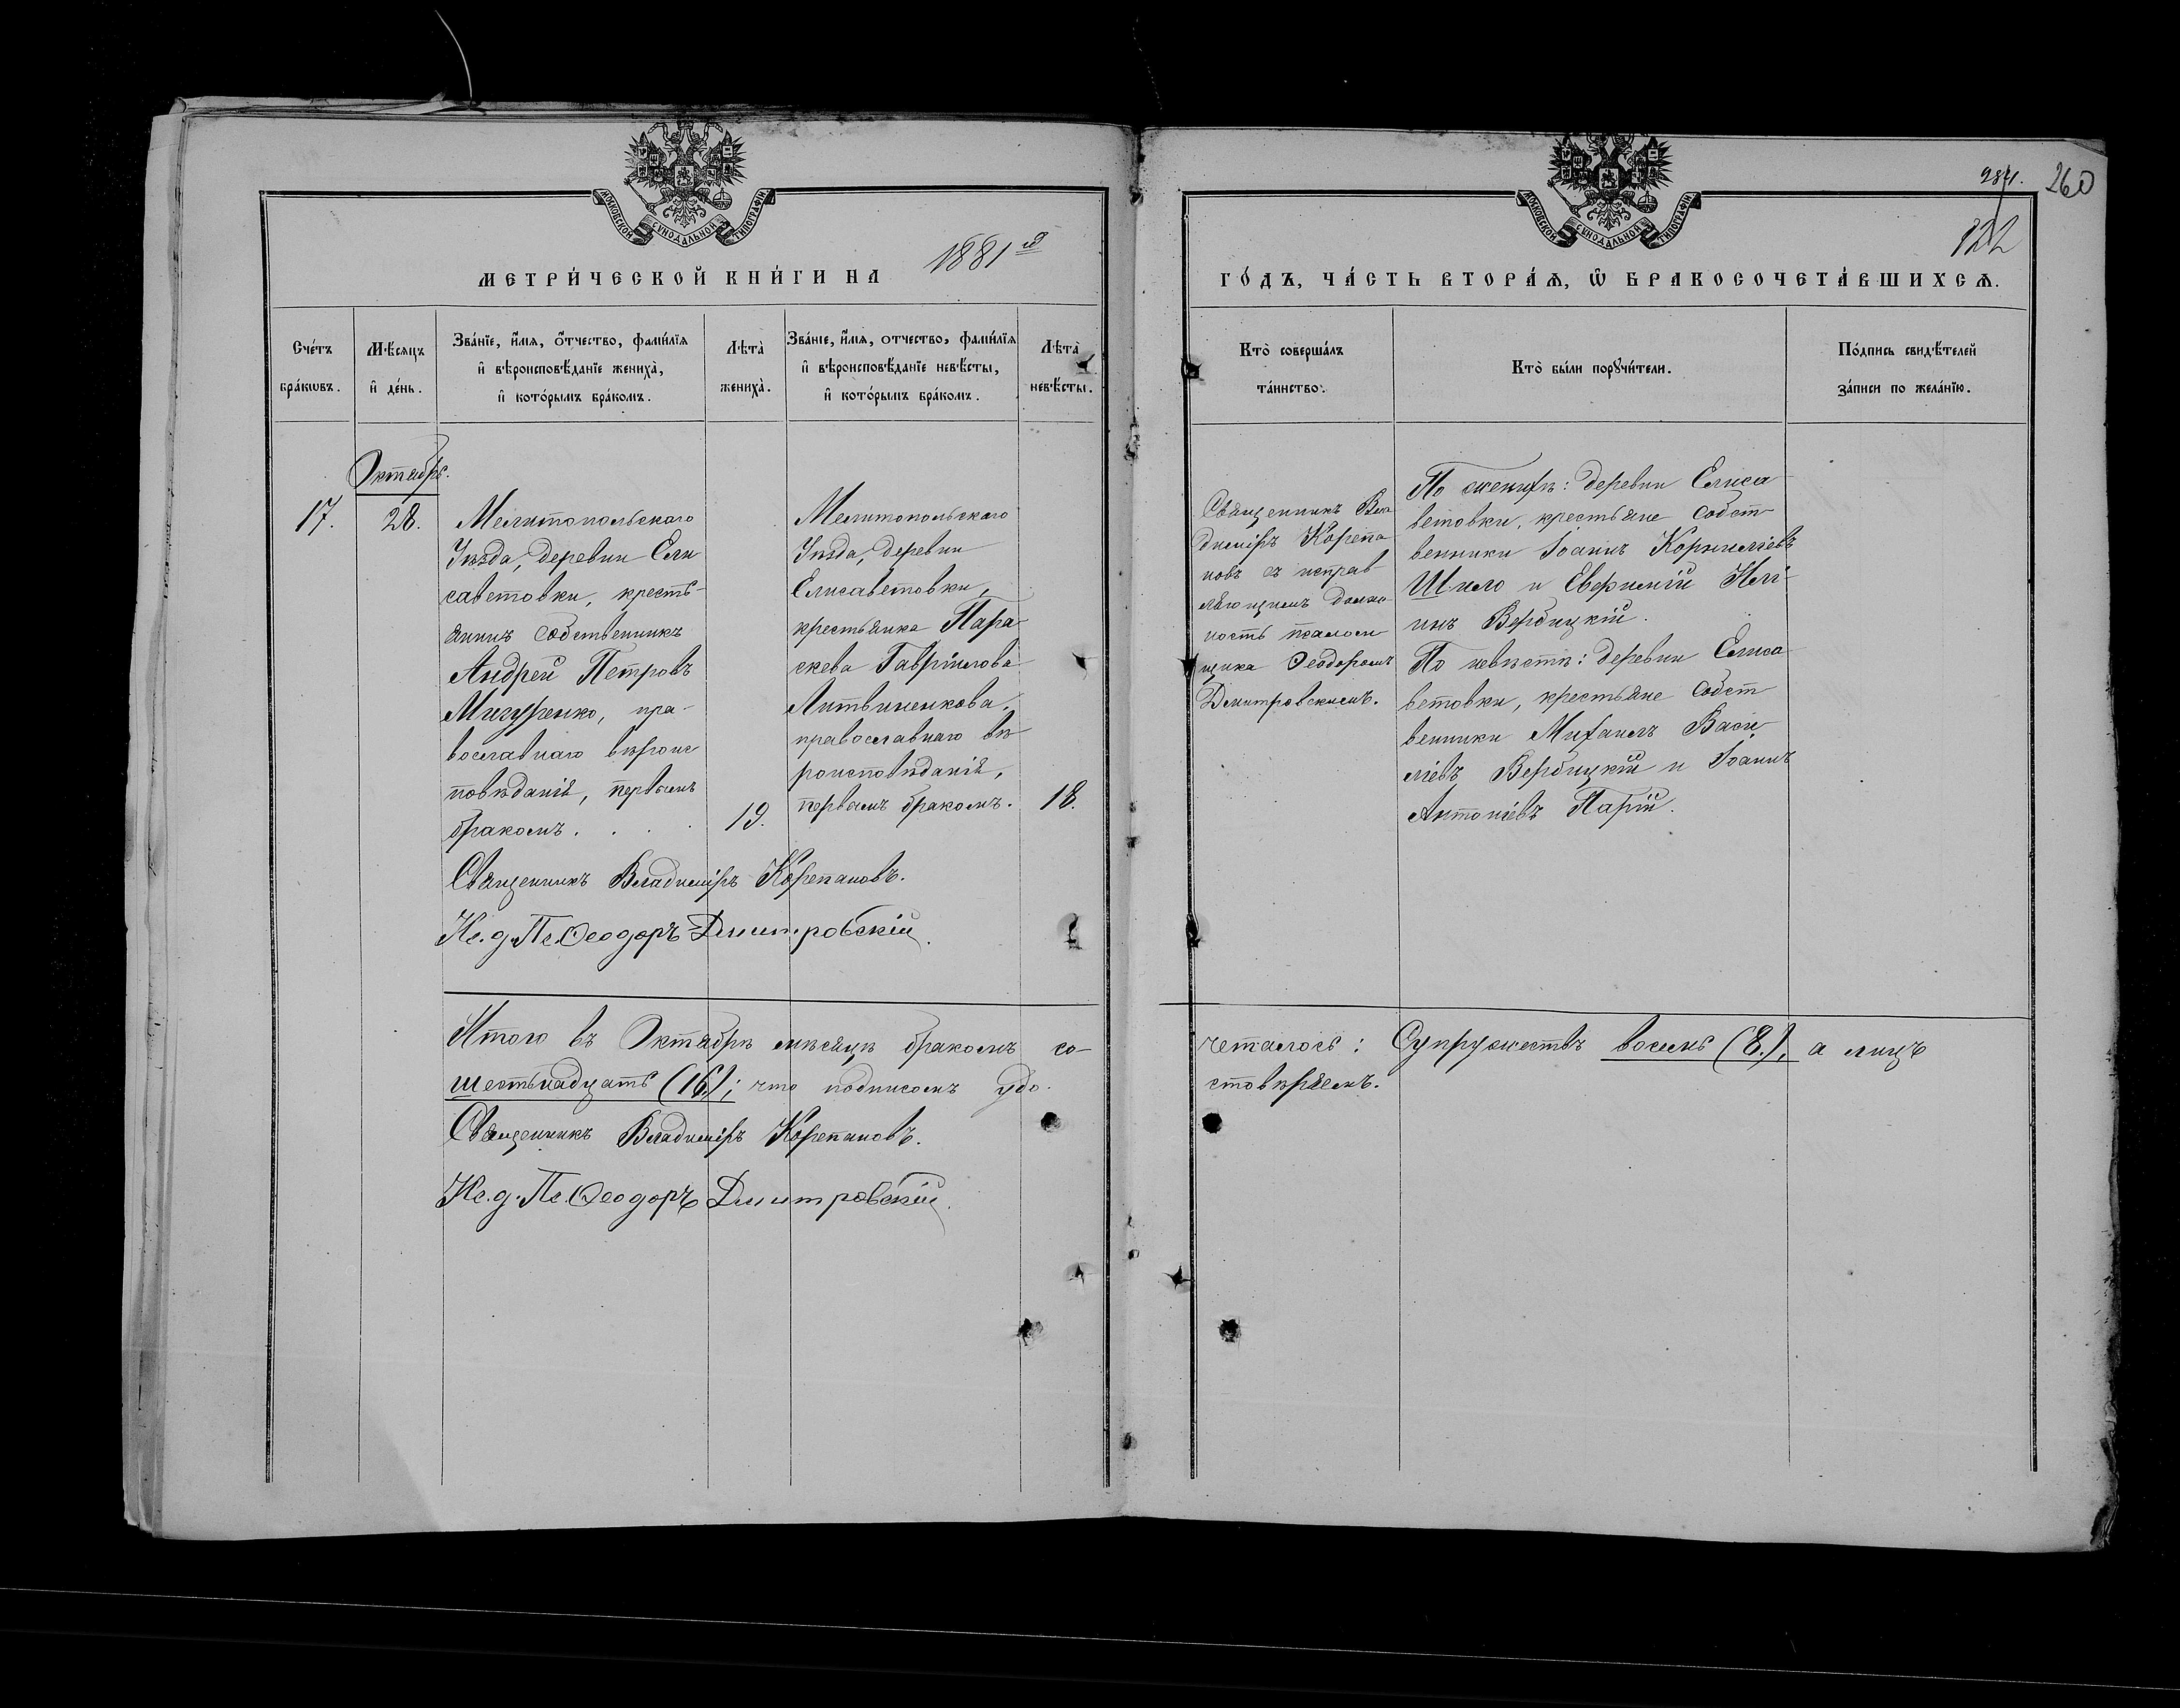 МОСКОВСКОЙ СУНОДАЛЬНОЙ ТИПОГРАФІИ
МЕТРИ́ЧЕСКОЙ КНИ́ГИ НА 1881й
Сче́тъ бра́кѡвъ.
Мѣ́сяцъ и҆ де́нь.
Зва́нїе, и҆́мѧ, ѻ҆́тчество, фами́лїѧ
и҆ вѣроисповѣ́данїе жениха̀,
и҆ кото́рымъ бра́комъ.
Лѣта̀ жениха̀.
Зва́нїе, и҆́мѧ, отчество, фами́лїѧ
и҆ вѣроисповѣ́данїе невѣ́сты,
и҆ кото́рымъ бра́комъ.
Лѣта̀ невѣ́сты.
Октябрь.
17.
28.
Мелитопольскаго
Уѣзда, деревни Ели
саветовки, кресть-
янинъ собственникъ
Андрей Петровъ
Мичуренко, пра-
вославнаго вѣроис
повѣданія, первымъ
бракомъ. . . .
19.
Мелитопольскаго
Уѣзда, деревни
Елисаветовки,
крестьянка Пара-
скева Гавріилова
Литвиненкова,
православнаго вѣ
роисповѣданія,
первымъ бракомъ.
18.
Священникъ Владиміръ Корепановъ.
Ис. д. Пс. Ѳеодоръ Дмитровскій.
Итого въ Октябрѣ мѣсяцѣ бракомъ со-
шестьнадцать (16.); что подписомъ удо-
Священникъ Владиміръ Корепановъ.
Ис. д. Пс. Ѳеодоръ Дмитровскій.
284.
260
122
МОСКОВСКОЙ СУНОДАЛЬНОЙ ТИПОГРАФІИ
ГО́ДЪ, ЧА́СТЬ ВТОРА́Ѧ, Ѡ҆ БРАКОСОЧЕТА́ВШИХСѦ.
Кто̀ соверша́лъ
та́инство.
Кто̀ бы́ли порꙋчи́тели.
По́дпись свидѣ́телей
за́писи по жела́нїю.
Священникъ Вла
диміръ Корепа
новъ съ исправ-
ляющимъ долж-
ность псалом
щика Ѳеодоромъ
Дмитровскимъ.
По женихѣ: деревни Елиса
ветовки, крестьяне собст
венники Іоаннъ Корниліевъ
Шило и Евфимій Илі-
инъ Вербицкій.
По невѣстѣ: деревни Елиса
ветовки, крестьяне собст
венники Михаилъ Васи
ліевъ Вербицкій и Іоаннъ
Антоніевъ Парій.
четалось: Супружествъ восемь (8.), а лицъ
стовѣряемъ.